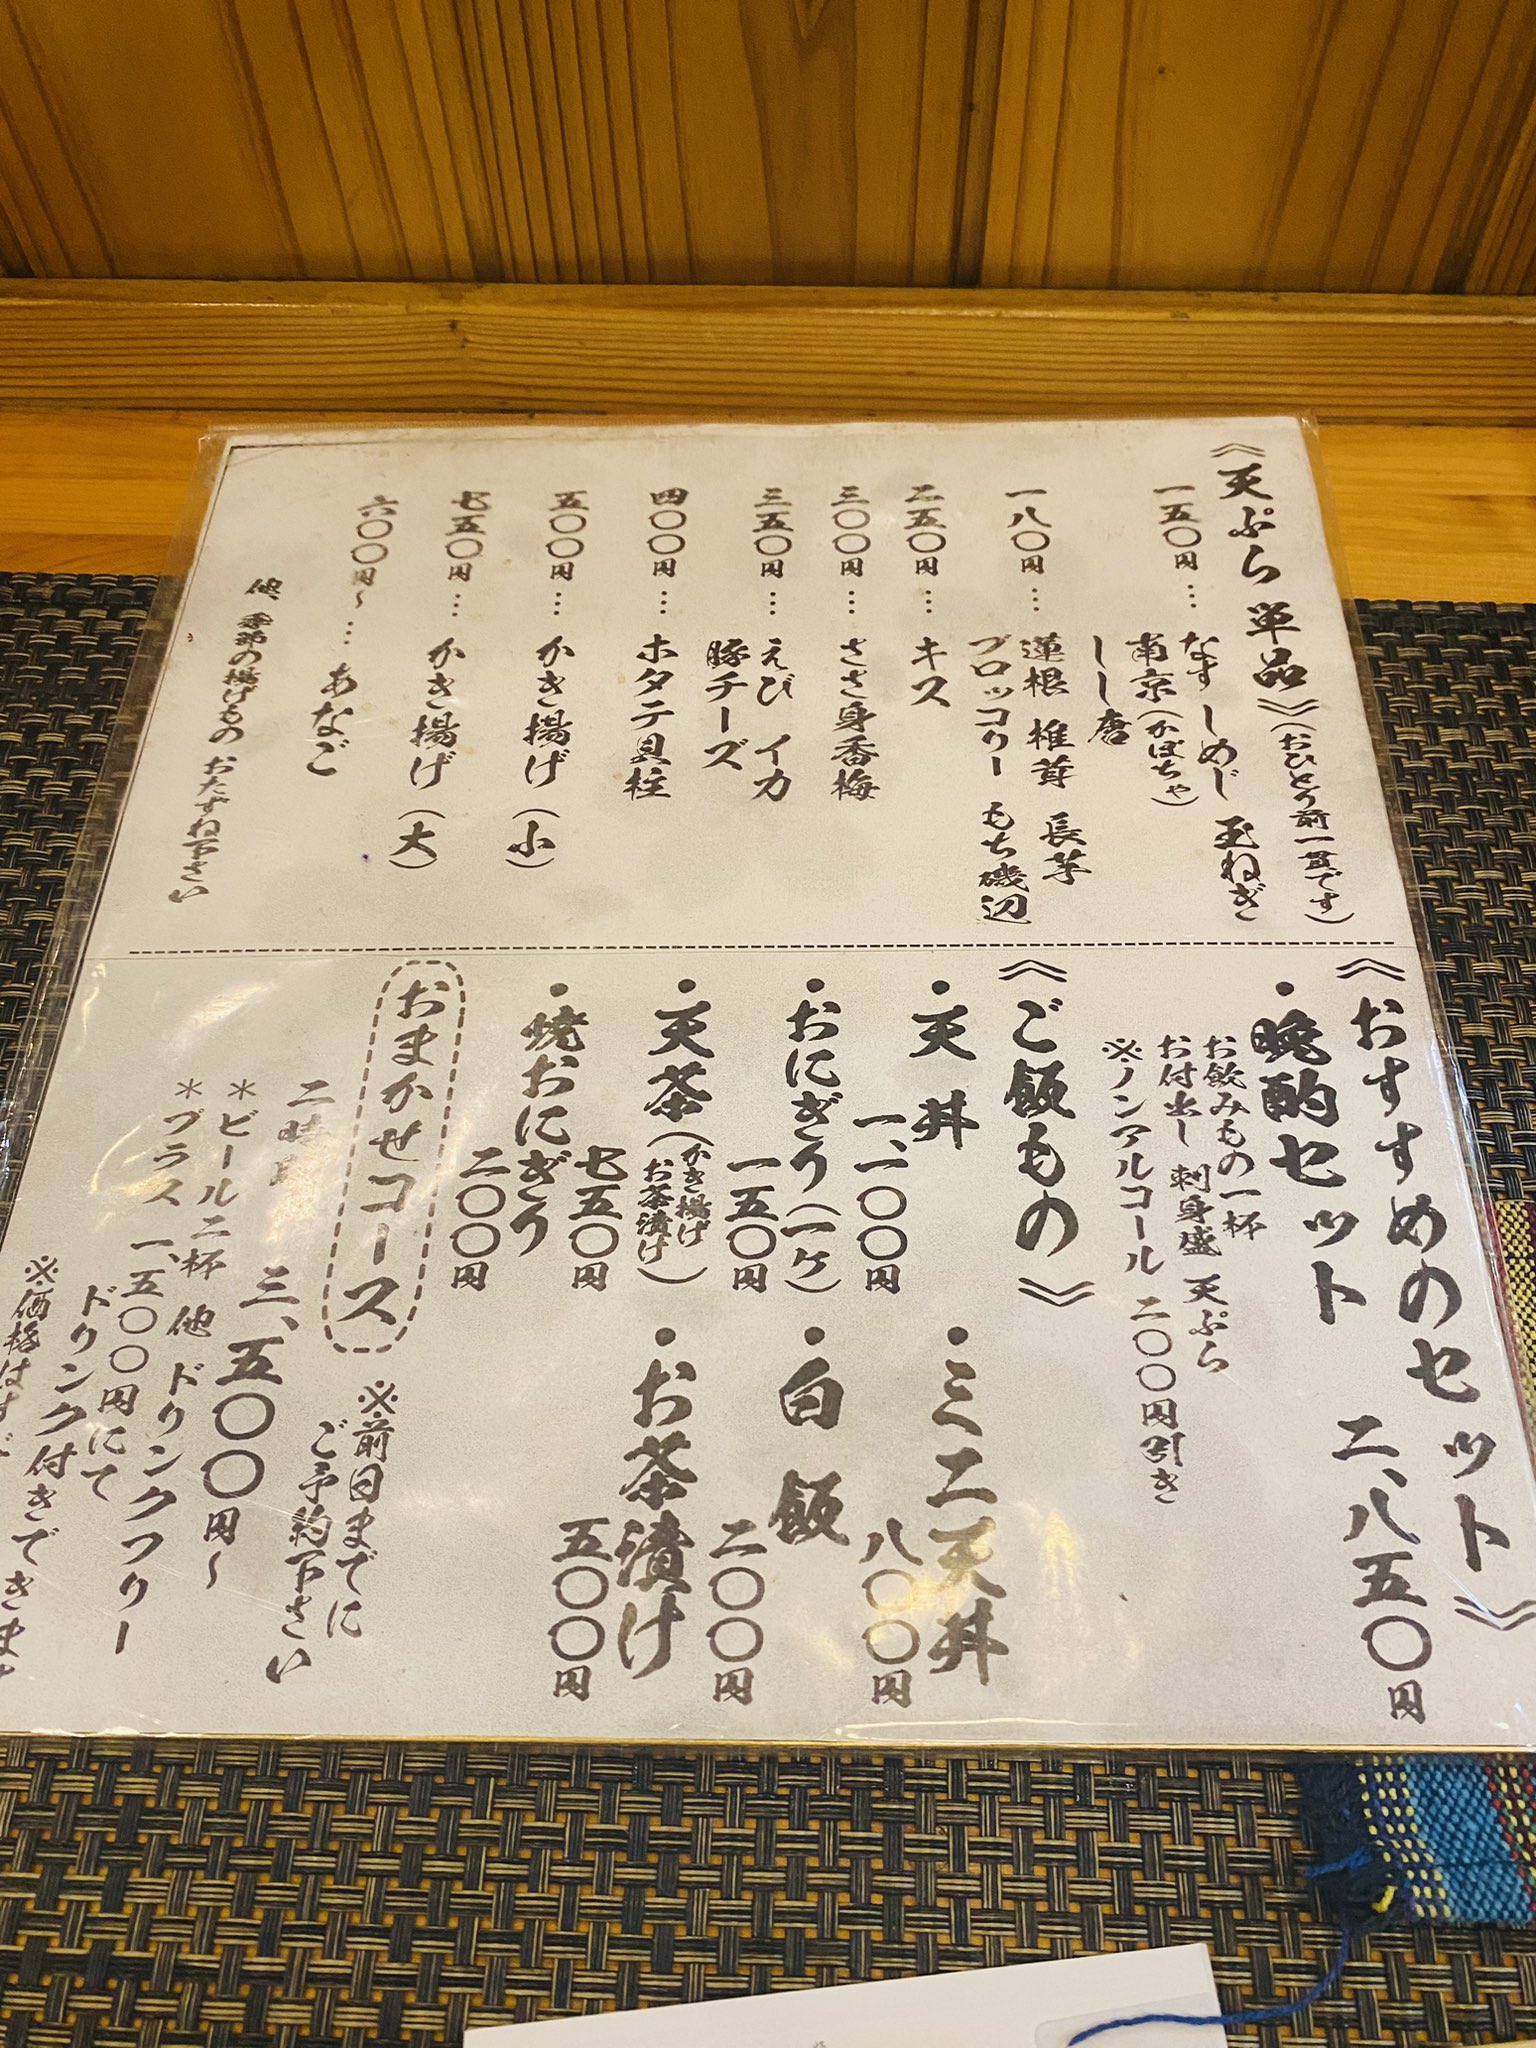 《天ぷら 単品》(おひとり前一貫です)
一五〇円…なす しめじ 玉ねぎ
南京(かぼちゃ)
しし唐
一八〇円…蓮根 椎茸 長芋
ブロッコリー もち磯辺
二五〇円…キス
三〇〇円…ささ身香梅
三五〇円…えび イカ
豚チーズ
四〇〇円…ホタテ貝柱
五〇〇円…かき揚げ(小)
七五〇円…かき揚げ(大)
六〇〇円～…あなご
他、季節の揚げもの おたずね下さい
《おすすめのセット》
・晩酌セット 二、八五〇円
お飲みもの一杯
お付出し 刺身盛 天ぷら
※ノンアルコール 二〇〇円引き
《ご飯もの》
・天丼 一、一〇〇円
・ミニ天丼 八〇〇円
・おにぎり(一ヶ) 一五〇円
・白飯 二〇〇円
・天茶(かき揚げ
お茶漬け) 七五〇円
・お茶漬け 五〇〇円
・焼おにぎり 二〇〇円
おまかせコース
※前日までに
ご予約下さい
二時間 三、五〇〇円～
＊ビール二杯 他 ドリンクフリー
＊プラス 一、五〇〇円にて
ドリンク付きできま
※価格はすべ